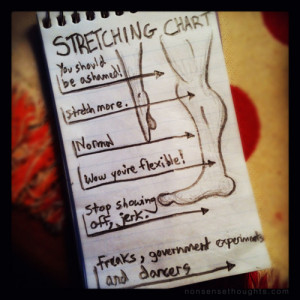 STRETCHING CHART
You should
be ashamed!
stretch more.
Normal
Wow you're flexible!
stop showing
off, jerk.
freaks, government experiments
and dancers
nonsensethoughts.com